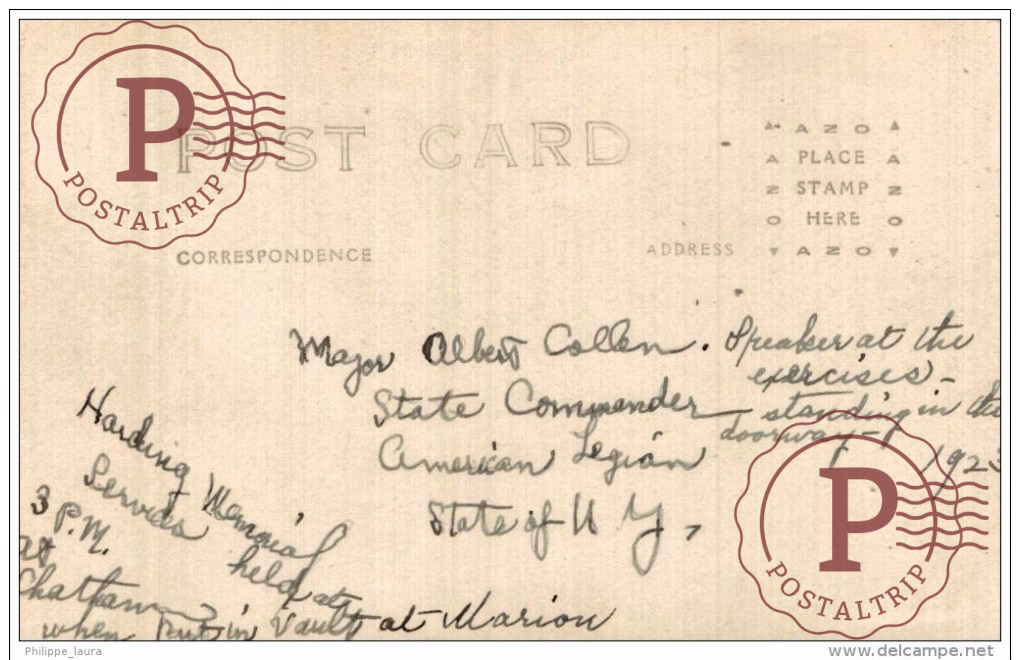 POST CARD
AZO
PLACE
STAMP
HERE
AZO
CORRESPONDENCE
ADDRESS
Major Albert Collen. Speaker at the
exercises -
State Commender standing in the
doorway - 1923
American Legion
State of N Y,
Harding Memorial
Services held at
3 P.M.
at
Chatham
when put in Vault at Marion
P
POSTALTRIP
P
POSTALTRIP
Philippe_laura
www.delcampe.net